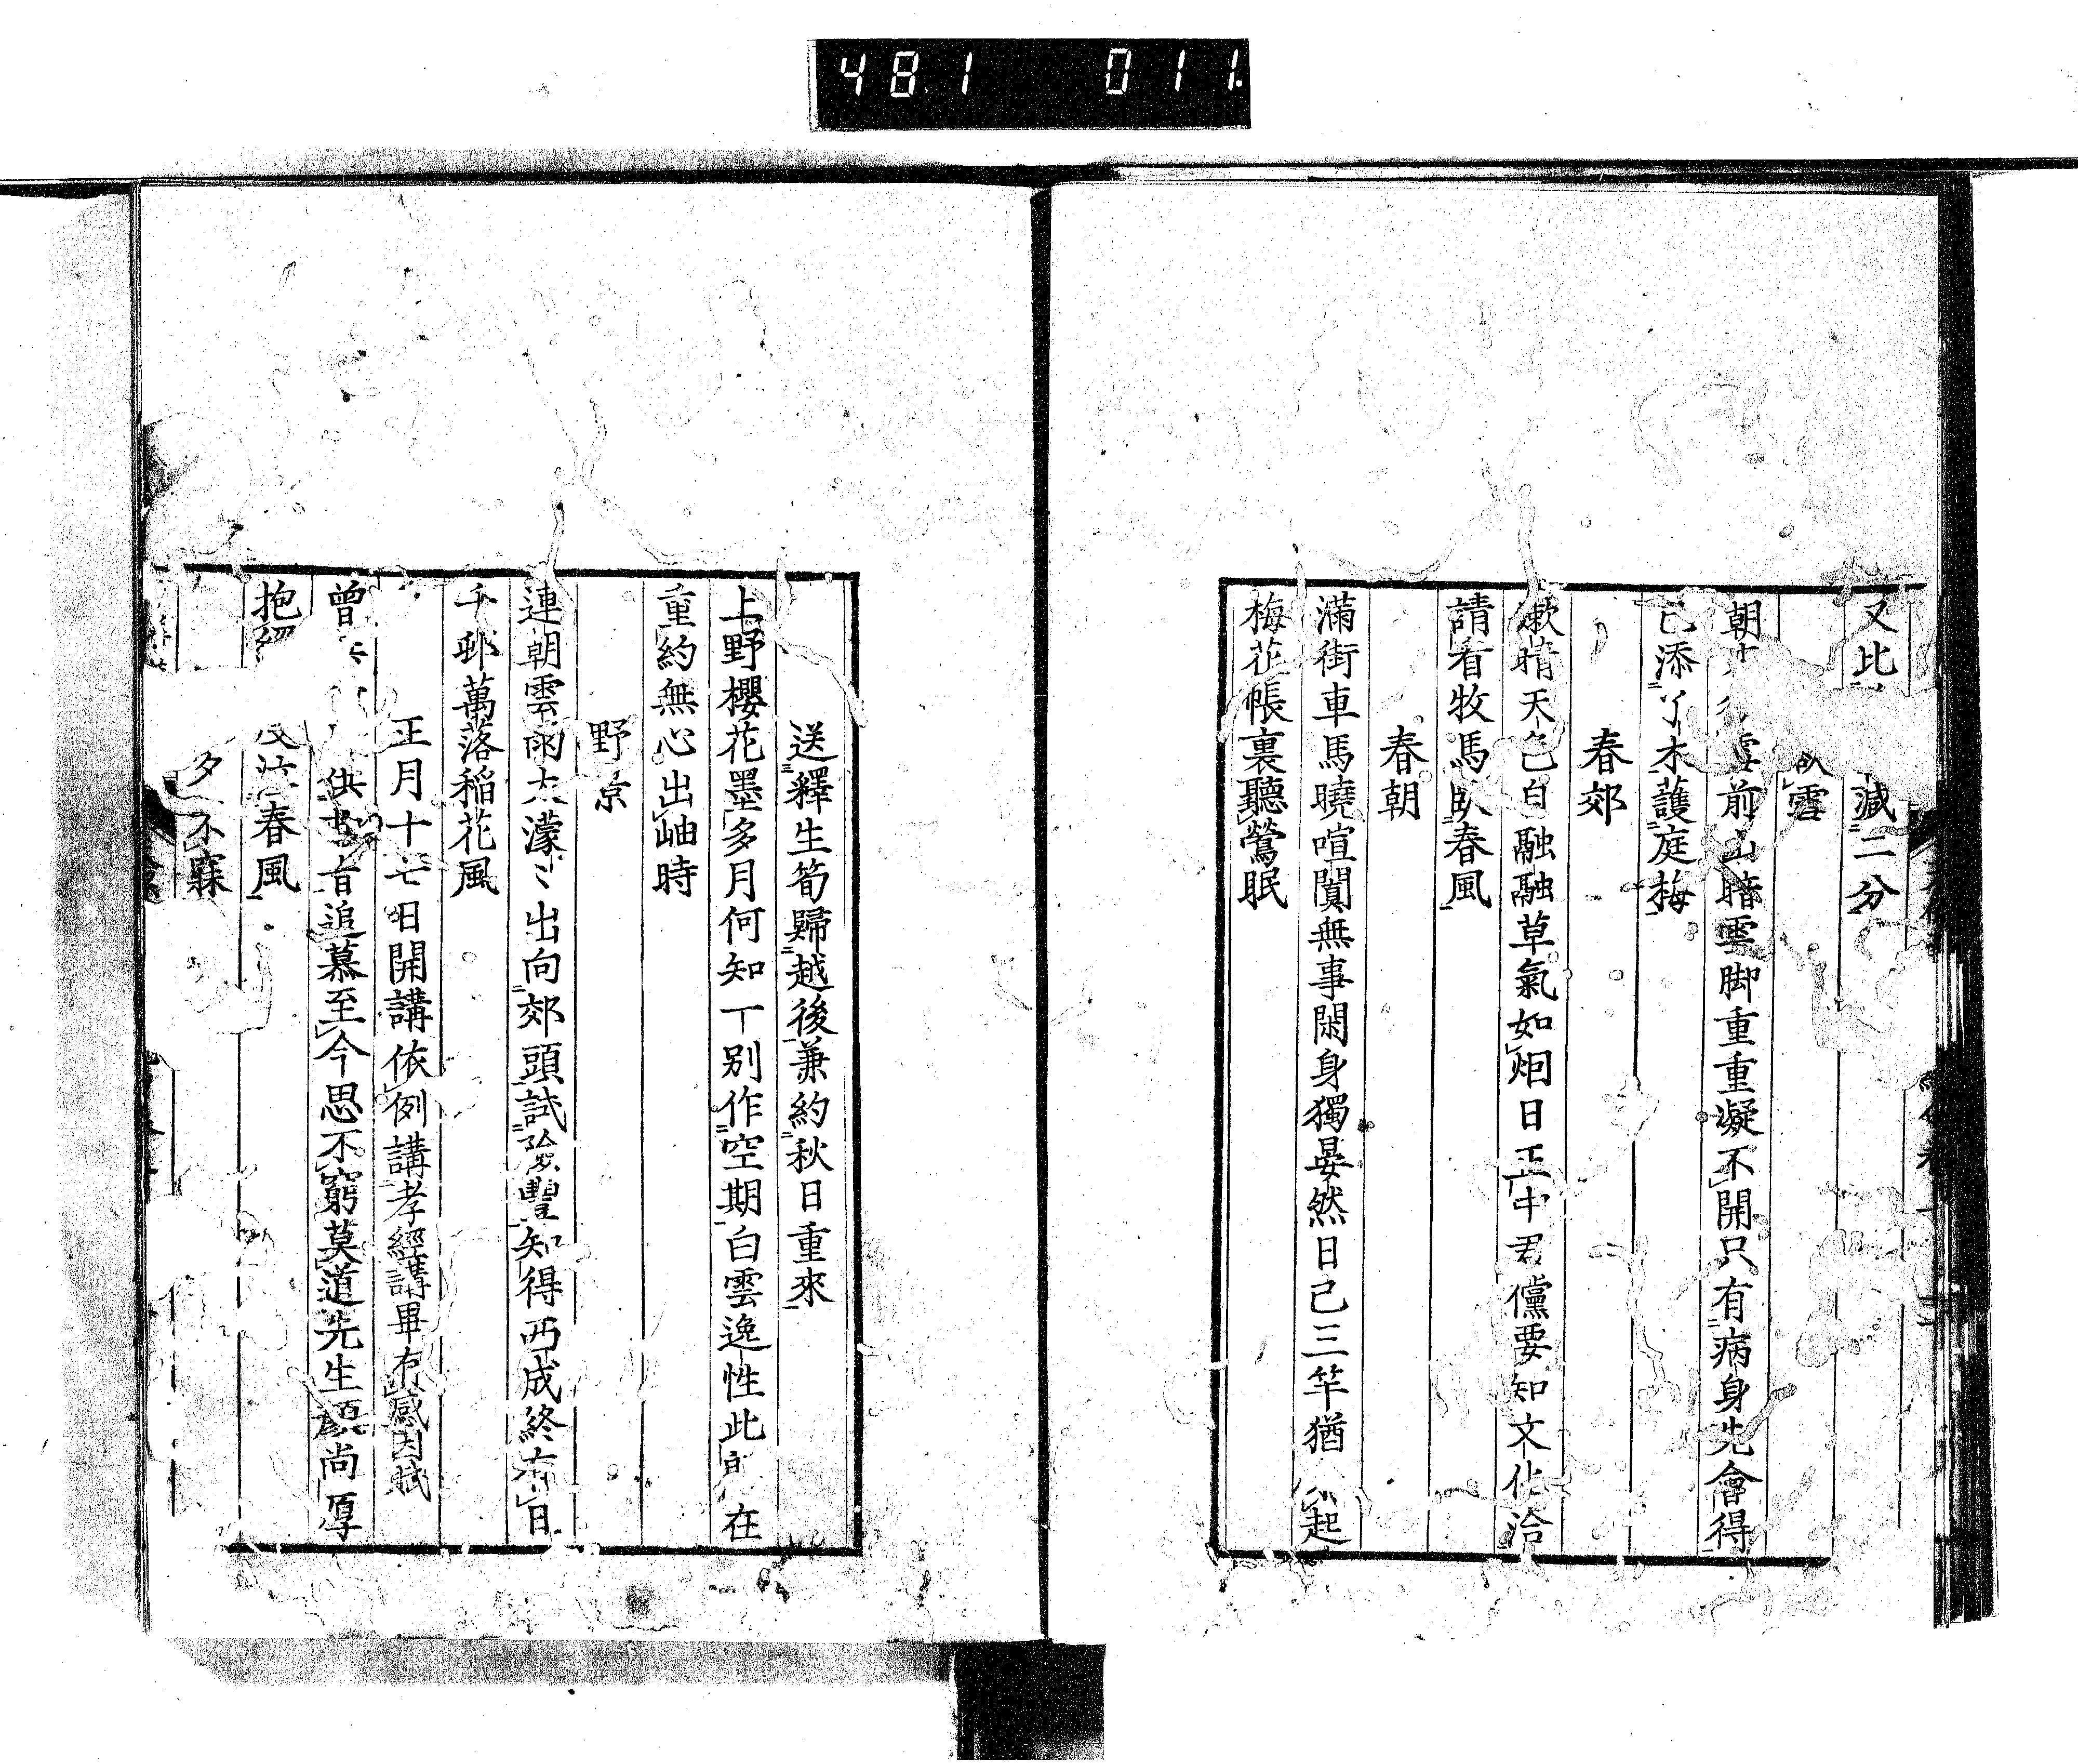 481 011
又比減二分
雪
朝前山暗雲脚重重凝不開只有病身先會得
已添丫木護庭梅
春郊
嫩晴天色自融融草氣如烟日正中君儻要知文化洽
請看牧馬臥春風
春朝
滿街車馬曉喧闐無事閑身獨晏然日已三竿猶起
梅花帳裏聽鶯眠
送釋生筍歸越後兼約秋日重來
上野櫻花墨多月何知一別作空期白雲逸性此在
重約無心出岫時
野景
連朝雲雨太濛〻出向郊頭試險豐知得西成終有日
千邨萬落稲花風
正月十七日開講依例講孝經講畢有感因賦
曾供昔追慕至今思不窮莫道先生顏尚厚
抱經泣春風
夕不寐